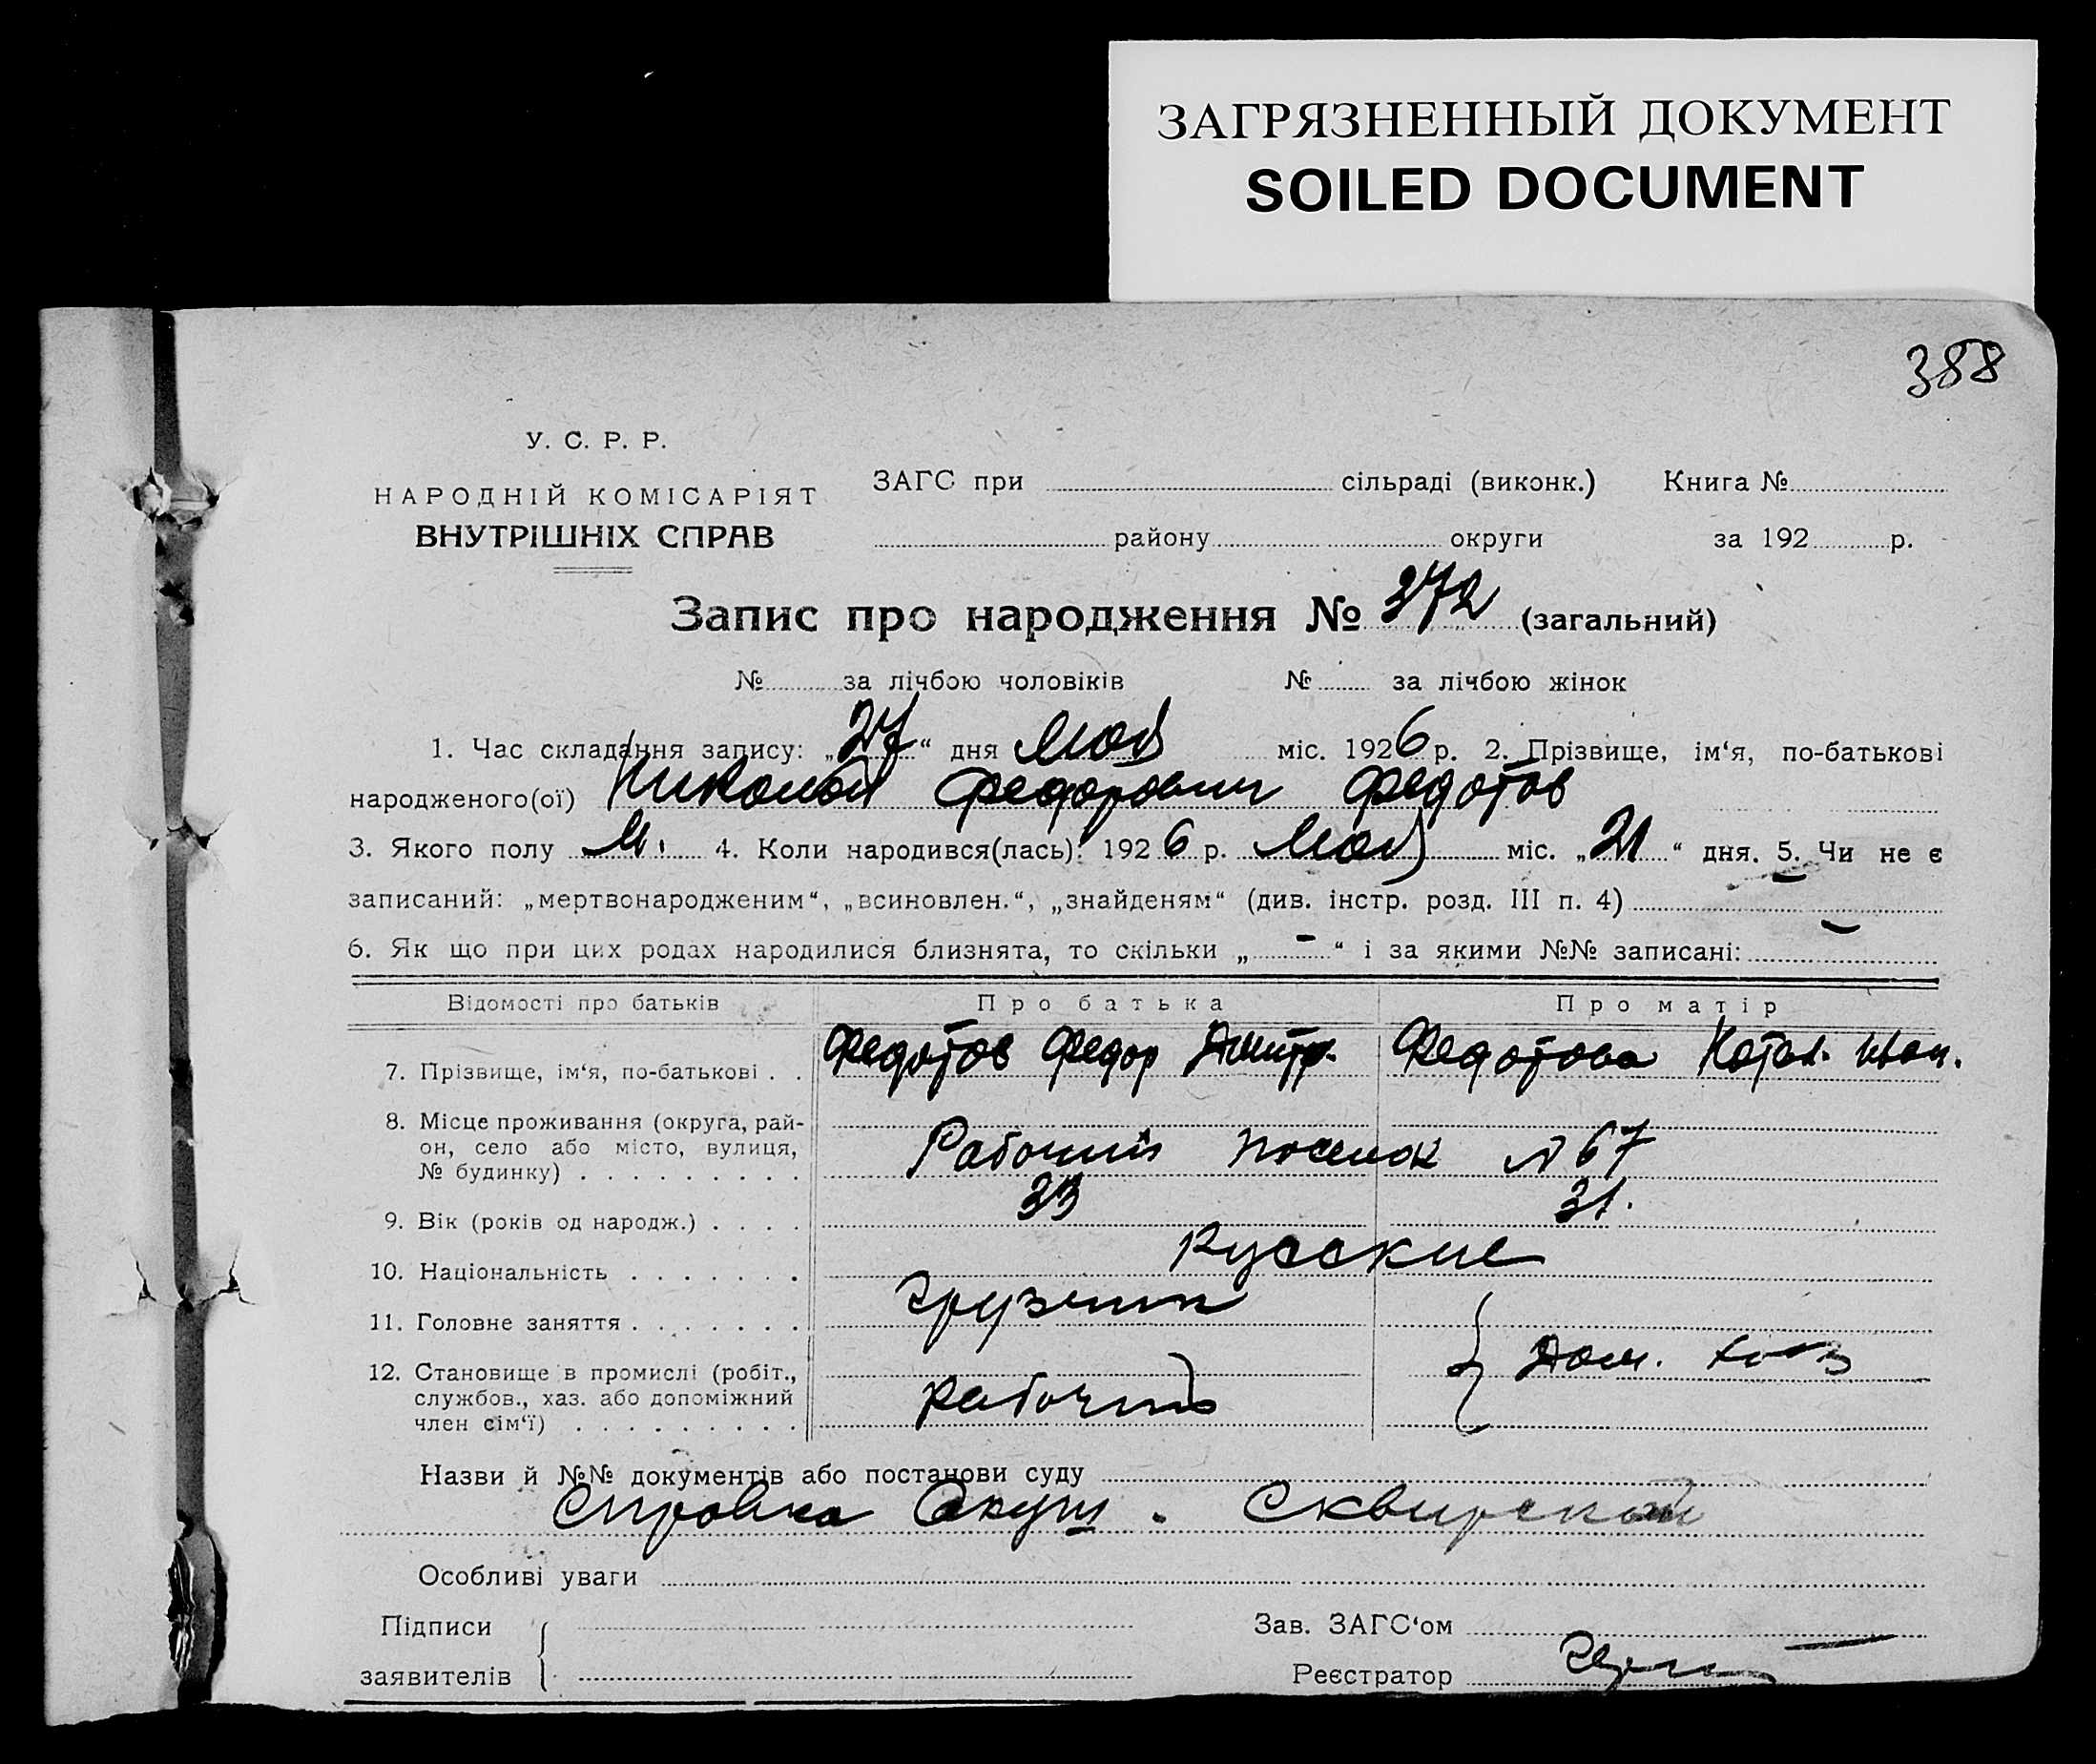 ЗАГРЯЗНЕННЫЙ ДОКУМЕНТ
SOILED DOCUMENT
388
У. С. Р. Р.
НАРОДНІЙ КОМІСАРІЯТ
ВНУТРІШНІХ СПРАВ
ЗАГС при сільраді (виконк.) Книга №
району округи за 192 р.
Запис про народження № 372 (загальний)
№ за лічбою чоловіків № за лічбою жінок
1. Час складання запису: „27“ дня мая міс. 1926 р. 2. Прізвище, ім‘я, по-батькові
народженого(ої) Николай Федорович Федотов
3. Якого полу м. 4. Коли народився(лась): 1926 р. мая міс. „21“ дня. 5. Чи не є
записаний: „мертвонародженим“, „всиновлен.“, „знайденям“ (див. інстр. розд. III п. 4) –
6. Як що при цих родах народилися близнята, то скільки „–“ і за якими №№ записані:
Відомості про батьків Про батька Про матір
7. Прізвище, ім‘я, по-батькові . . Федотов Федор Дмитр. Федотова Катал. Иван.
8. Місце проживання (округа, рай-
он, село або місто, вулиця,
№ будинку) . . . . . . . . . Рабочий поселок № 67
9. Вік (років од народж.) . . . . 33 31.
10. Національність . . . . . . . Русские
11. Головне заняття . . . . . . . грузчик
12. Становище в промислі (робіт.,
службов., хаз. або допоміжний
член сім‘ї) . . . . . . . . . рабочий Дом. хоз
Назви й №№ документів або постанови суду
Справка Акуш. Сквирской
Особливі уваги
Підписи
заявителів
Зав. ЗАГС‘ом
Реєстратор